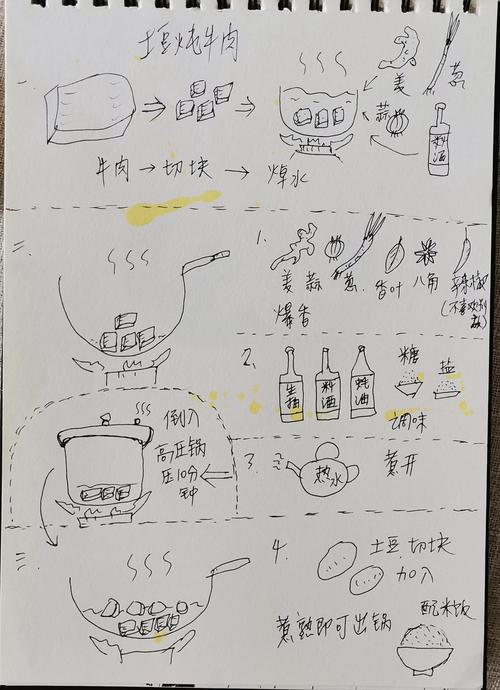 土豆炖牛肉
一、
姜
葱
蒜
料酒
牛肉→切块→焯水
二、
1.
姜 蒜 葱 香叶 八角 辣椒
(不喜欢别放)
爆香
2.
生抽
料酒
蚝油
糖
盐
调味
倒入
高压锅
压10分
钟
3.
热水
煮开
三、
4.
土豆 切块
加入
煮熟即可出锅
配米饭